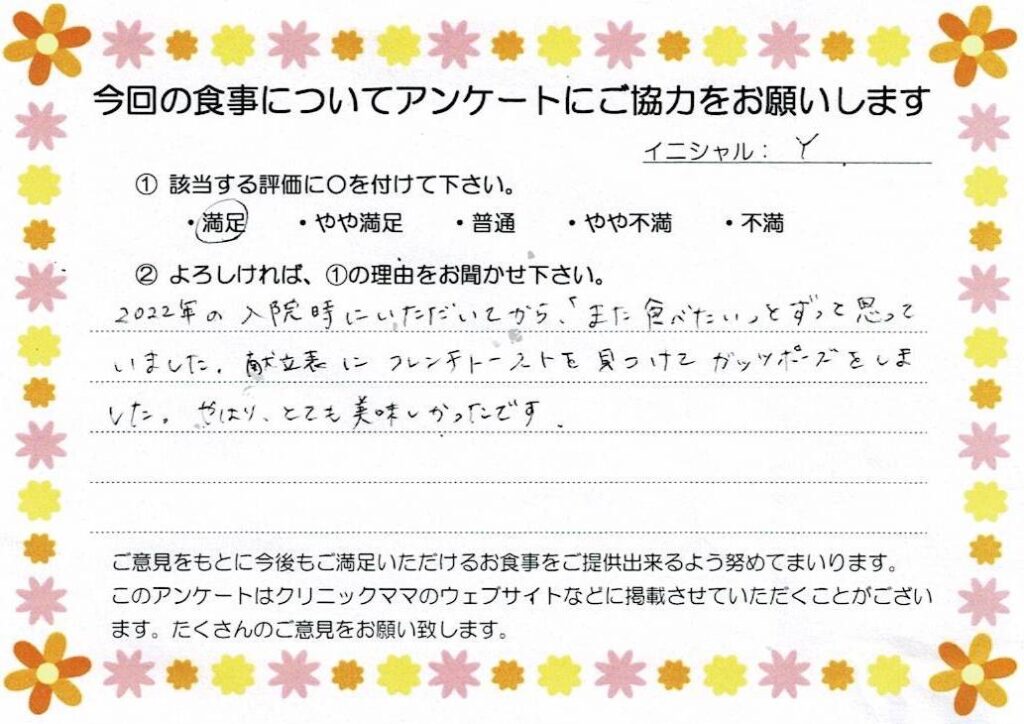 今回の食事についてアンケートにご協力をお願いします
イニシャル： Y
① 該当する評価に〇を付けて下さい。
・満足 ・やや満足 ・普通 ・やや不満 ・不満
② よろしければ、①の理由をお聞かせ下さい。
2022年の入院時にいただいてから、「また食べたい」とずっと思って
いました。献立表にフレンチトーストを見つけてガッツポーズをしま
した。やはり、とても美味しかったです.
ご意見をもとに今後もご満足いただけるお食事をご提供出来るよう努めてまいります。
このアンケートはクリニックママのウェブサイトなどに掲載させていただくことがござい
ます。たくさんのご意見をお願い致します。